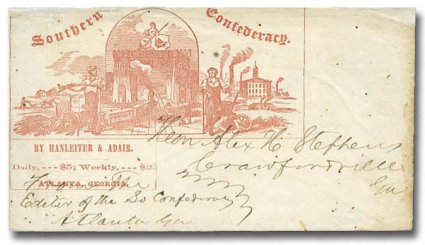 Southern Confederacy.
BY HANLEITER & ADAIR.
Daily, $5; Weekly, $2.
ATLANTA, GEORGIA.
Hon Alex H Stephens
Crawfordville
Ga
From The
Editor of the So Confederacy
Atlanta Geo